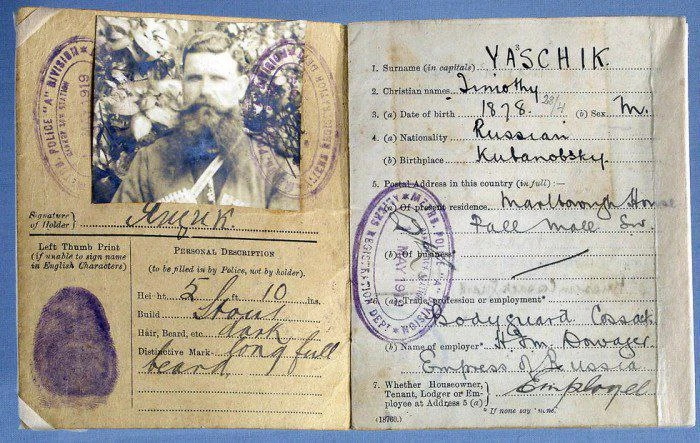 POLICE "A" DIVISION
1919
Signature of Holder
Left Thumb Print
(if unable to sign name
in English Characters)
PERSONAL DESCRIPTION
(to be filled in by Police, not by holder).
Height 5 ft 10 ins.
Build Stout
Hair, Beard, etc. dark
Distinctive Mark long full
beard
1. Surname (in capitals) YASCHIK.
2. Christian names Timothy
3. (a) Date of birth 1878. 28/4 (b) Sex M.
4. (a) Nationality Russian
(b) Birthplace Kubanobsky.
5. Postal Address in this country (in full) :—
(a) Of present residence. Marlborough House
Pall Mall S.W.
(b) Of business*
METRO POLICE "A" DIVISION
MAY 1919
ALIENS REGISTRATION DEPT
6. (a) Trade, profession or employment*
Bodyguard Cossack
(b) Name of employer* H.I.M. Dowager
Empress of Russia
7. Whether Householder,
Tenant, Lodger or Em-
ployee at Address 5 (a)
Employee
* If none say "none."
(18760.)